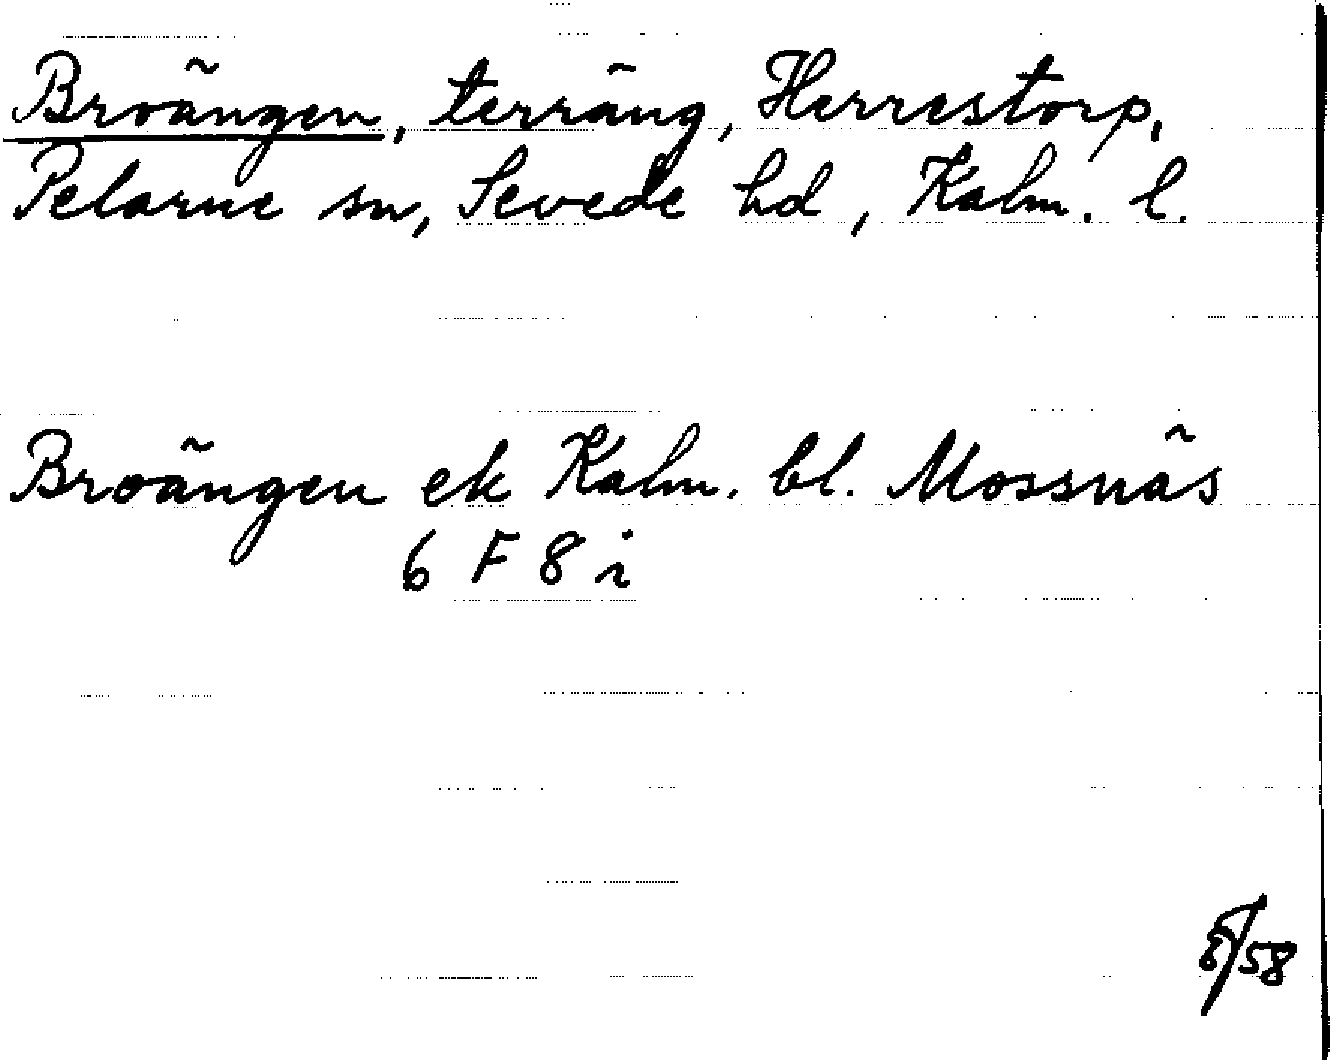 Broängen, terräng, Herrestorp,
Pelarne sn, Sevede hd, Kalm. l.
Broängen ek Kalm. bl. Mossnäs
6 F 8 i